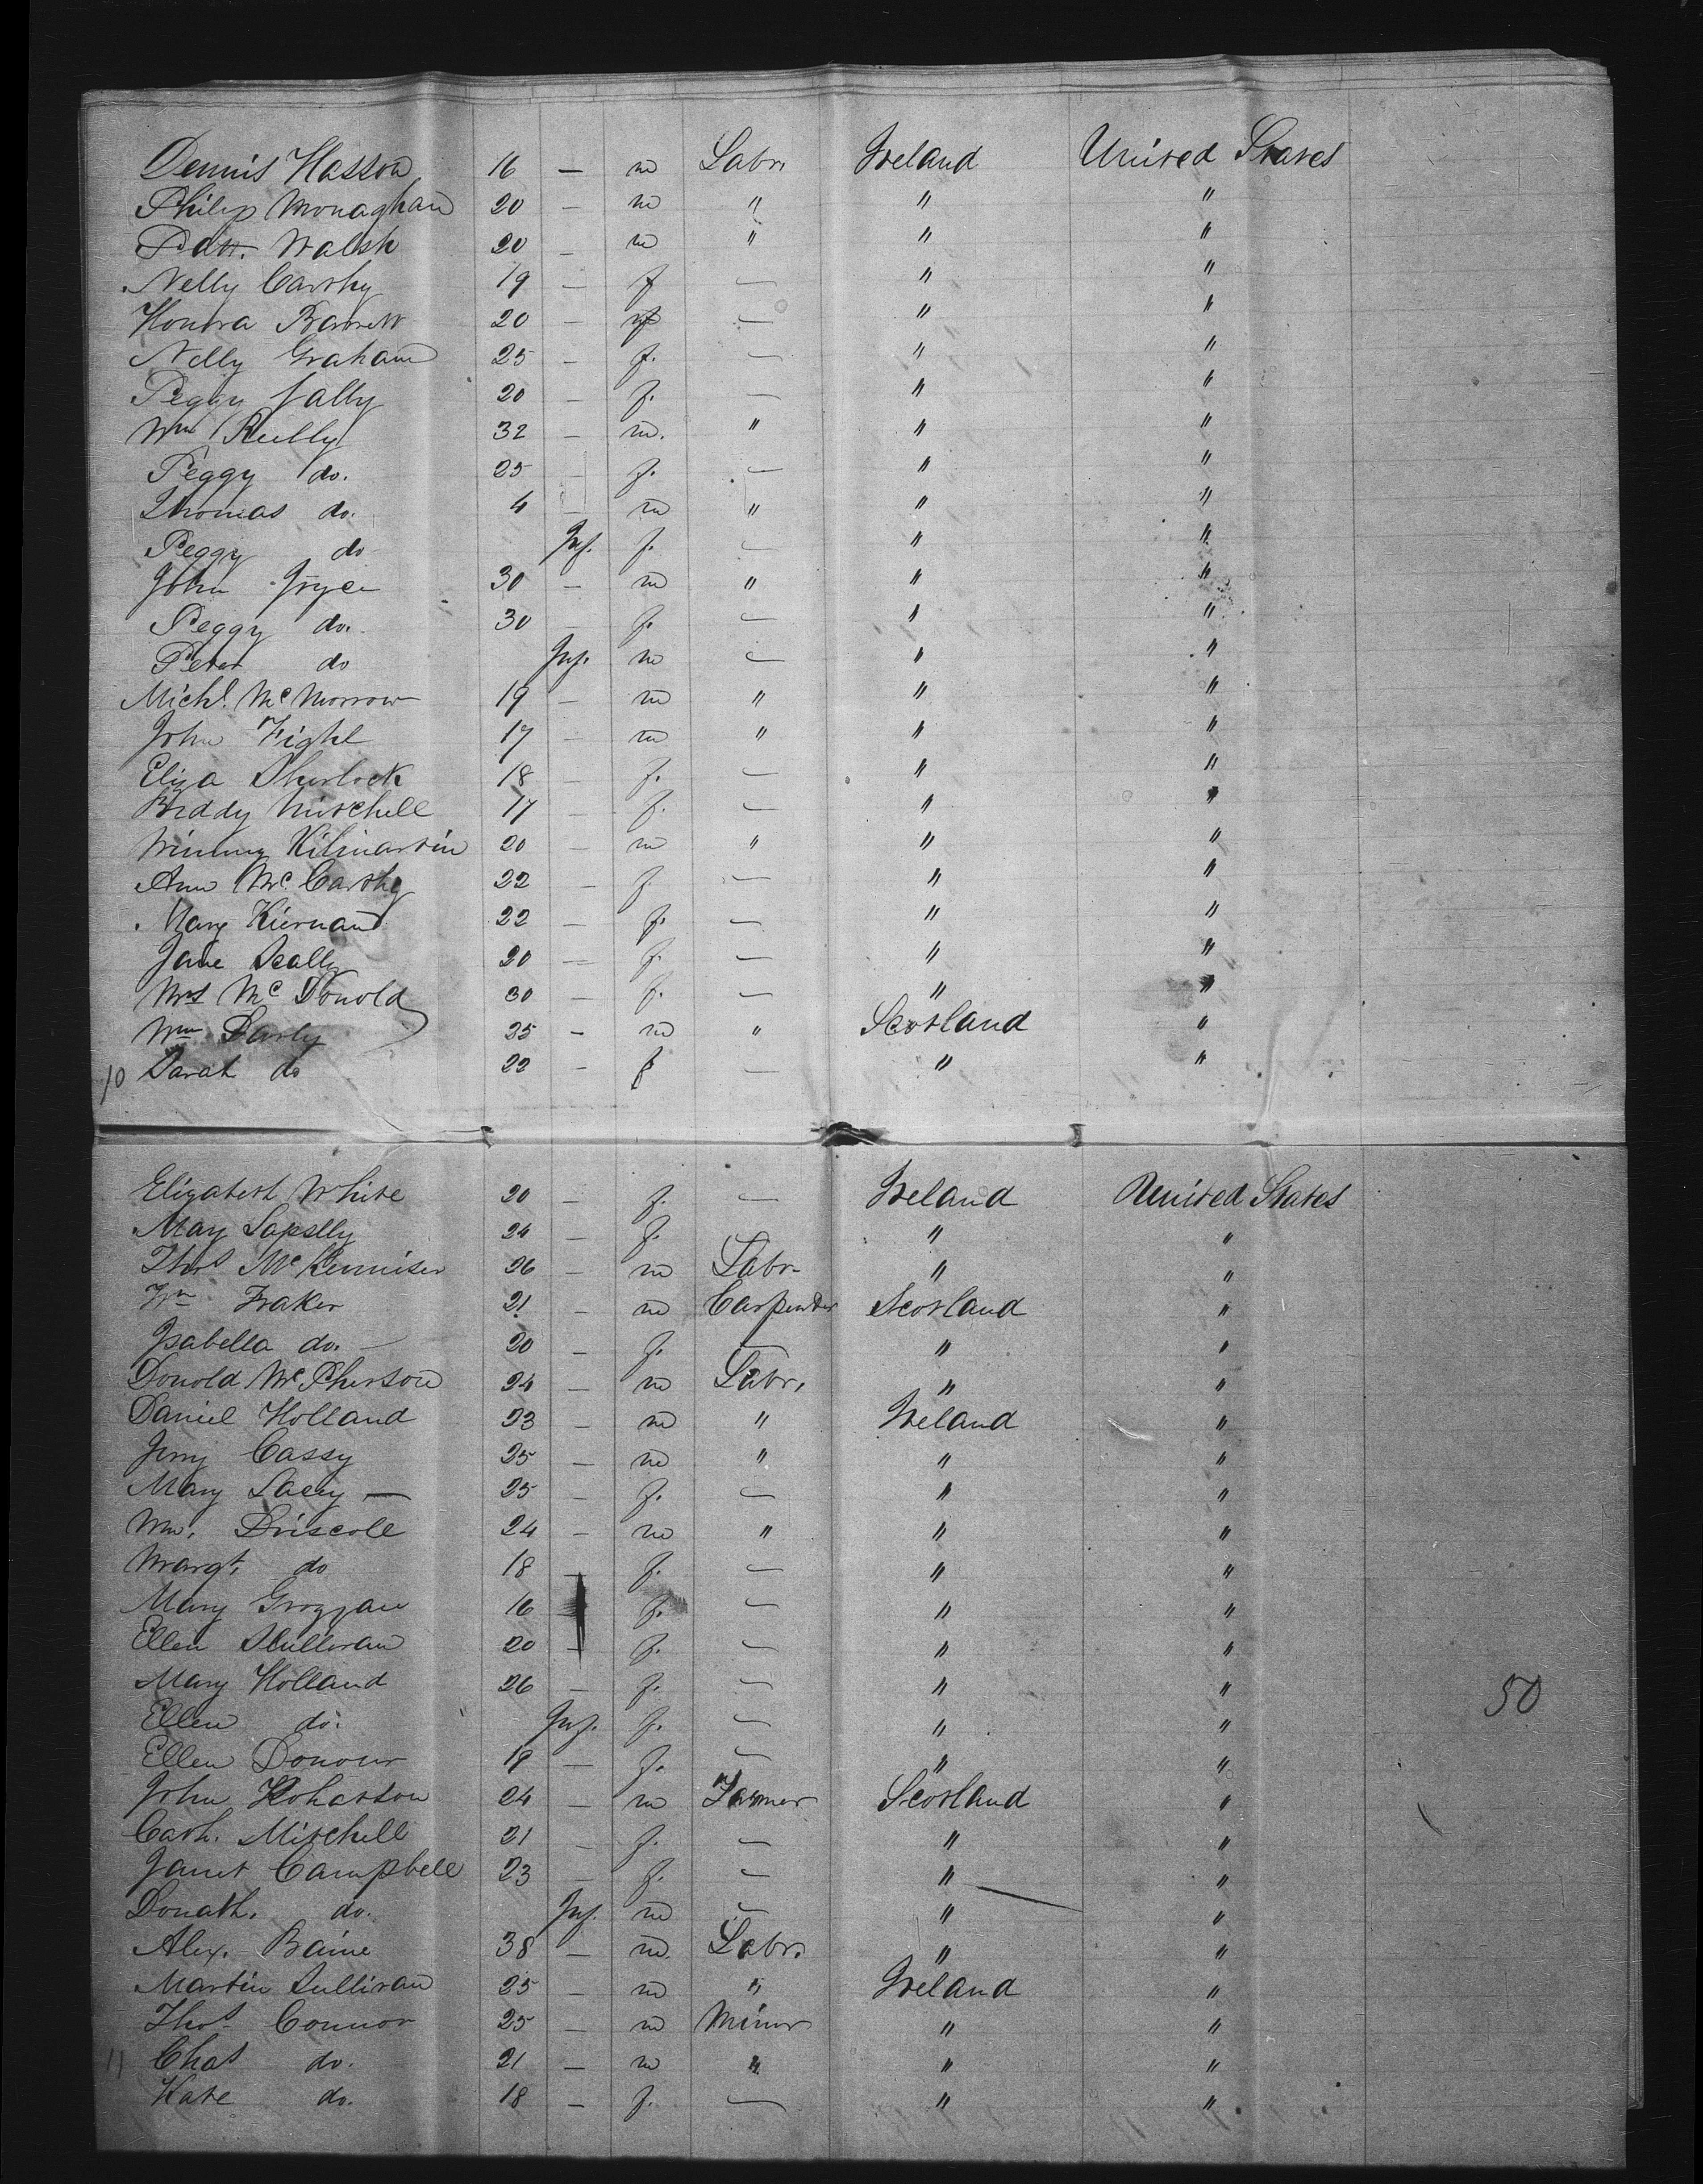 Dennis Hasson 16 — m Labr. Ireland United States
Philip Monaghan 20 — m " " "
Patt. Walsh 20 — m " " "
Nelly Carthy 19 — f — " "
Honora Barrett 20 — f — " "
Nelly Graham 25 — f. — " "
Peggy Lally 20 — f. — " "
Wm Reilly 32 — m. " " "
Peggy do. 25 — f. — " "
Thomas do. 4 — m " " "
Peggy do Inf. f. — " "
John Joyce 30 — m " " "
Peggy do. 30 — f. — " "
Peter do Inf. m — " "
Michl. McMorrow 19 — m " " "
John Fight 17 — m " " "
Eliza Sherlock 18 — f. — " "
Biddy Mitchell 17 — f. — " "
Winny Kilmartin 20 — m " " "
Ann McCarthy 22 — f — " "
Mary Kiernan 22 — f. — " "
Jane Scally 20 — f. — " "
Mrs McDonold 30 — f. — " "
Wm Darly 35 — m " Scotland "
10 Sarah do 22 — f — " "
Elizabeth White 20 — f. — Ireland United States
Mary 24 — f. — " "
Thos 26 — m Labr. " "
Wm Fraker 21 — m Carpenter Scotland "
Isabella do. — 20 — f. — " "
Donold McPherson 24 — m Labr. " "
Daniel Holland 23 — m " Ireland "
Jerry Cassy 25 — m " " "
Mary Lacey — 25 — f. — " "
Wm. Driscoll 24 — m " " "
Margt. do 18 — f. — " "
Mary Groggan 16 — f. — " "
Ellen Sullivan 20 — f. — " "
Mary Holland 26 — f. — " "
50
Ellen do. Inf. f. — " "
Ellen Donour 19 — f. — " "
John 24 — m Farmer Scotland "
Cath. Mitchell 21 — f. — " "
Janet Campbell 23 — f. — " "
Donath. do. Inf. m — " "
Alex. Baine 38 — m. Labr. " "
Martin Sullivan 25 — m " Ireland "
Thos Connor 25 — m Miner " "
11 Chas do. 21 — m " " "
Kate do. 18 — f. — " "